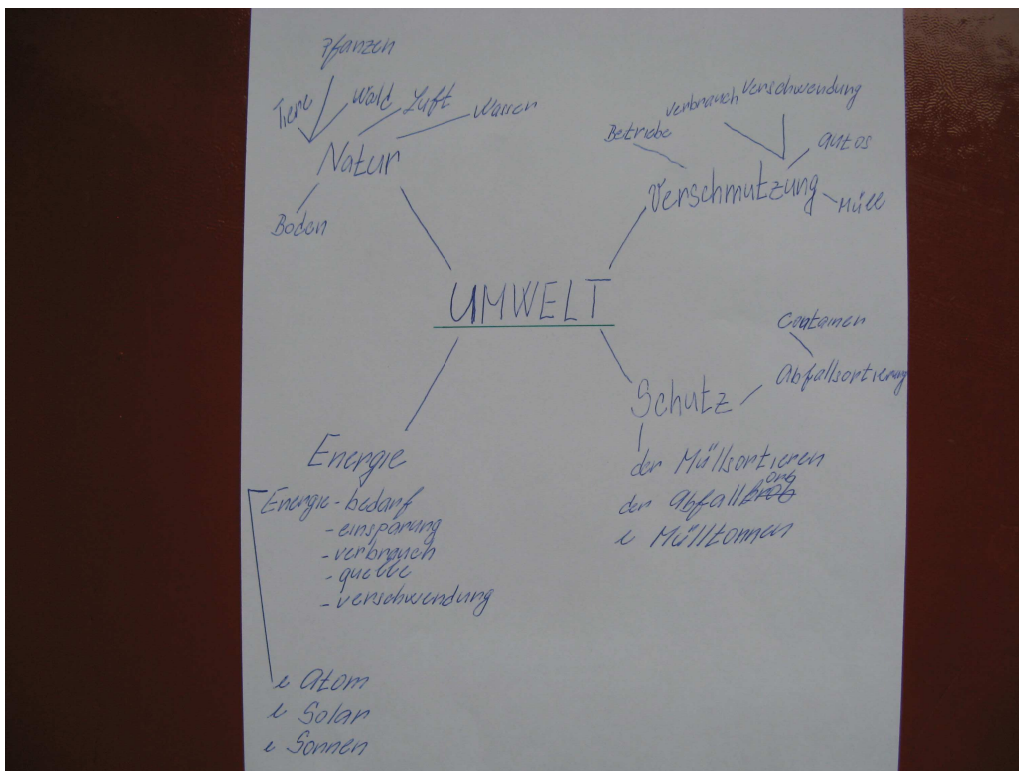 Pflanzen
Tiere
Wald
Luft
Wasser
Natur
Boden
Betriebe
verbrauch
Verschwendung
Autos
Verschmutzung
Müll
UMWELT
Container
Abfallsortierung
Schutz
der Müllsortieren
der Abfallkorb
e Mülltonnen
Energie
Energie-bedarf
-einsparung
-verbrauch
-quelle
-verschwendung
e Atom
e Solar
e Sonnen